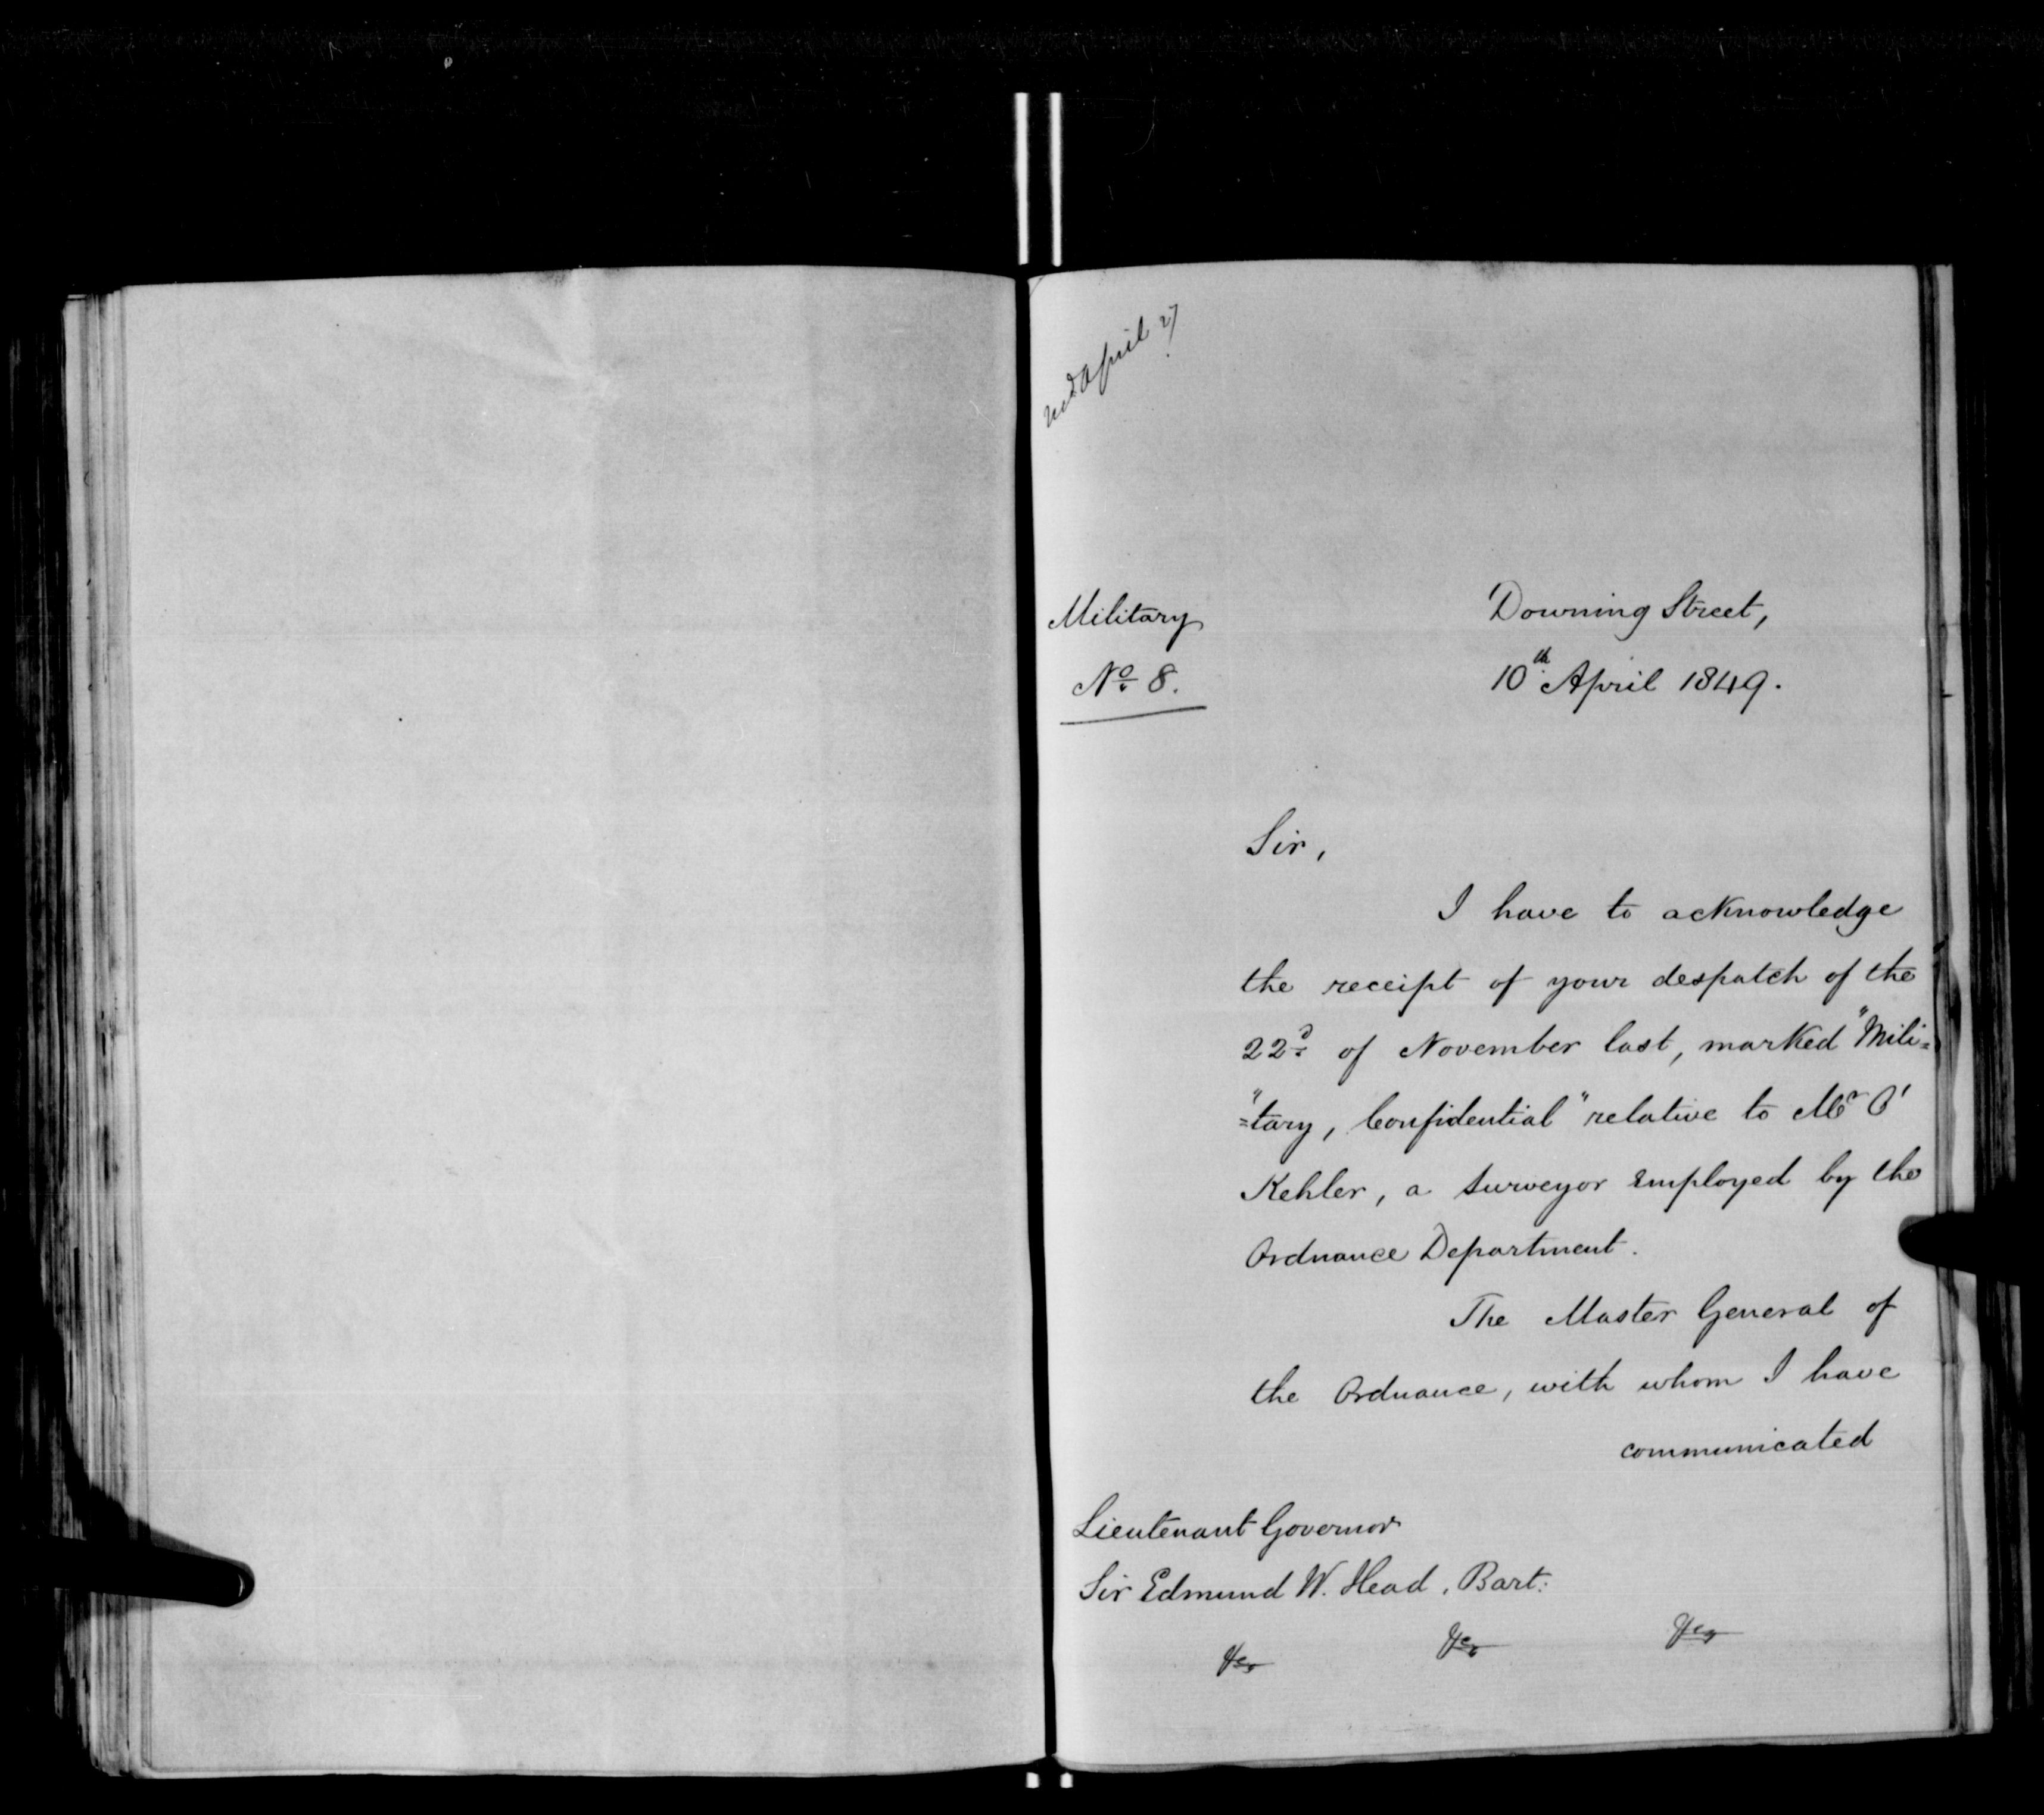 recd April 27
Military
No. 8.
Downing Street,
10th April 1849.
Sir,
I have to acknowledge
the receipt of your despatch of the
22d of November last, marked "Mili=
"=tary, Confidential" relative to Mr O'
Kehler, a Surveyor employed by the
Ordnance Department.
The Master General of
the Ordnance, with whom I have
communicated
Lieutenant Governor
Sir Edmund W. Head, Bart:
&c &c &c